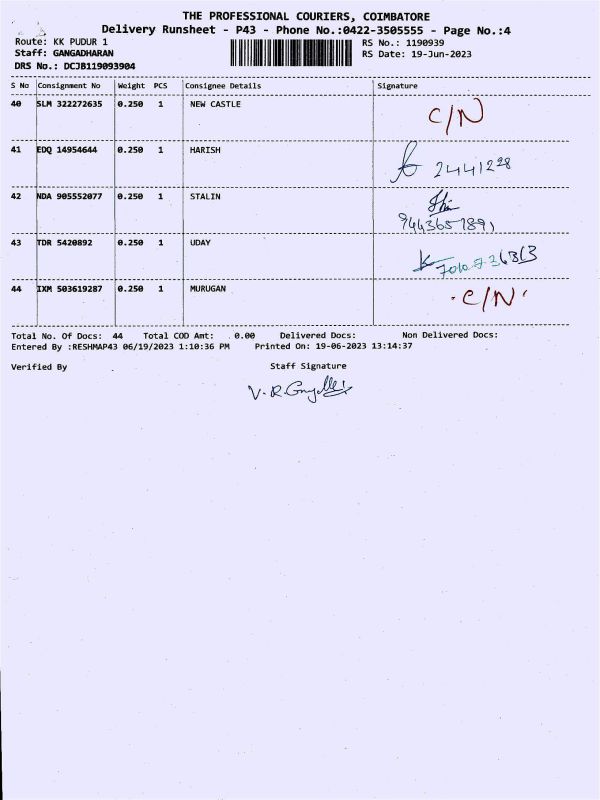 THE PROFESSIONAL COURIERS, COIMBATORE
Delivery Runsheet - P43 - Phone No.:0422-3505555 - Page No.:4
Route: KK PUDUR 1 RS No.: 1190939
Staff: GANGADHARAN RS Date: 19-Jun-2023
DRS No.: DCJB119093904
S No Consignment No Weight PCS Consignee Details Signature
40 SLM 322272635 0.250 1 NEW CASTLE C/N
41 EDQ 14954644 0.250 1 HARISH 2441228
42 NDA 905552077 0.250 1 STALIN
43 TDR 5420892 0.250 1 UDAY
44 IXM 503619287 0.250 1 MURUGAN C/N
Total No. Of Docs: 44 Total COD Amt: 0.00 Delivered Docs: Non Delivered Docs:
Entered By :RESHMAP43 06/19/2023 1:10:36 PM Printed On: 19-06-2023 13:14:37
Verified By Staff Signature